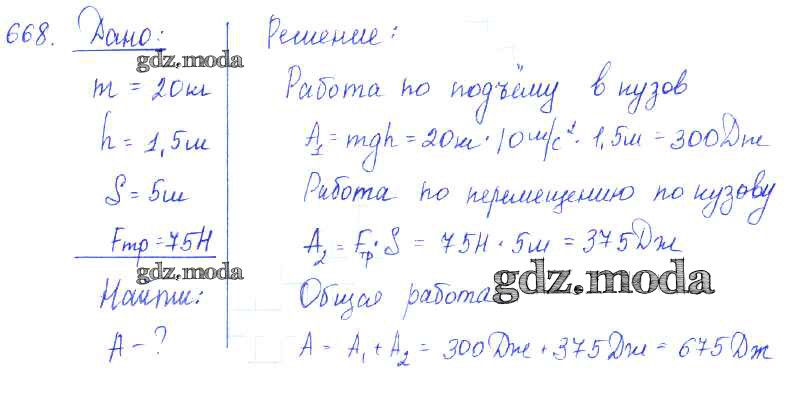 668. Дано:
gdz.moda
m = 20кг
h = 1,5м
S = 5м
Fтр = 75Н
gdz.moda
Найти:
A - ?
Решение:
Работа по подъёму в кузов
A₁ = mgh = 20кг · 10м/с² · 1,5м = 300Дж
Работа по перемещению по кузову
A₂ = Fтр · S = 75Н · 5м = 375Дж
gdz.moda
Общая работа
A = A₁ + A₂ = 300Дж + 375Дж = 675Дж